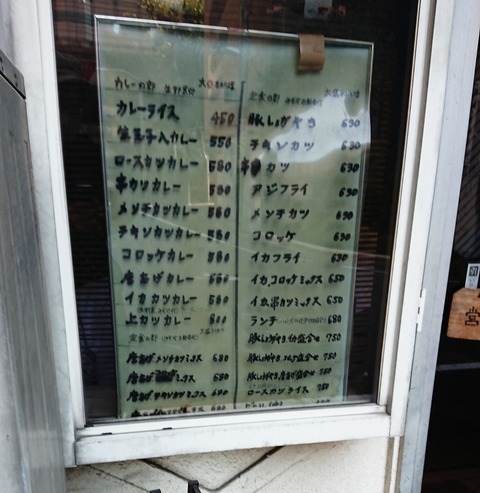 カレーの部 大盛
カレーライス 450
生玉子入カレー 550
ロースカツカレー 580
串カツカレー
メンチカツカレー 560
チキンカツカレー 560
コロッケカレー 560
唐あげカレー 550
イカカツカレー 560
上カツカレー
定食の部
唐あげメンチカツミックス 680
唐あげ ミックス 680
唐あげチキンカツミックス 690
定食の部
豚しょうがやき 630
チキンカツ 630
串カツ 630
アジフライ 630
メンチカツ 630
コロッケ 630
イカフライ 630
イカ,コロッケミックス 650
イカ,串カツミックス 650
ランチ 680
豚しょうがやき 盛合せ 750
豚しょうがやき, 盛合せ 750
豚しょうがやき,唐あげ盛合せ 750
ロースカツライス 750
営